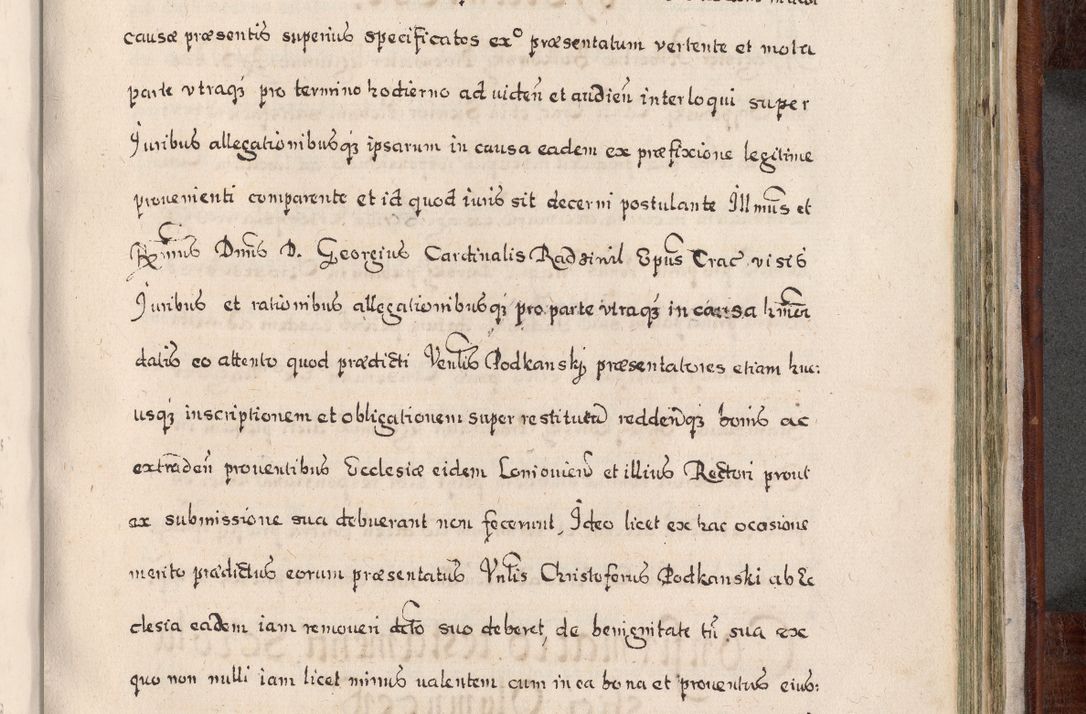 causæ præsentis superius specificatos exº præsentatum vertente et mota
parte vtraqȝ pro termino hodierno ad uideñ et audieñ interloqui super
Juribus allegationibusqȝ ipsarum in causa eadem ex præfixione legitime
prouenienti comparente et id quod iuris sit decerni postulante Illmus et
Rmus Dnus D. Georgius Cardinalis Radziwil Epus Crac visis
Juribus et rationibus allegationibusqȝ pro parte vtraqȝ in causa hmoi
datis eo attento quod prædicti Venlis Podkanskj præsentatores etiam huc:
usqȝ inscriptionem et obligationem super restitueñ reddeñqȝ bonis ac
extradeñ prouentibus Ecclesiæ eidem Loniouieñ et illius Rectori prout
ex submissione sua debuerant non fecerunt, Ideo licet ex hac ocasione
merito prædictus eorum præsentatus Vnlis Christoferus Podkanski ab Ec
clesia eadem iam remoueri dcto suo deberet, de benignitate tñ sua exe
quo non nulli iam licet minus ualentem cum in ea bona et prouentus eius: